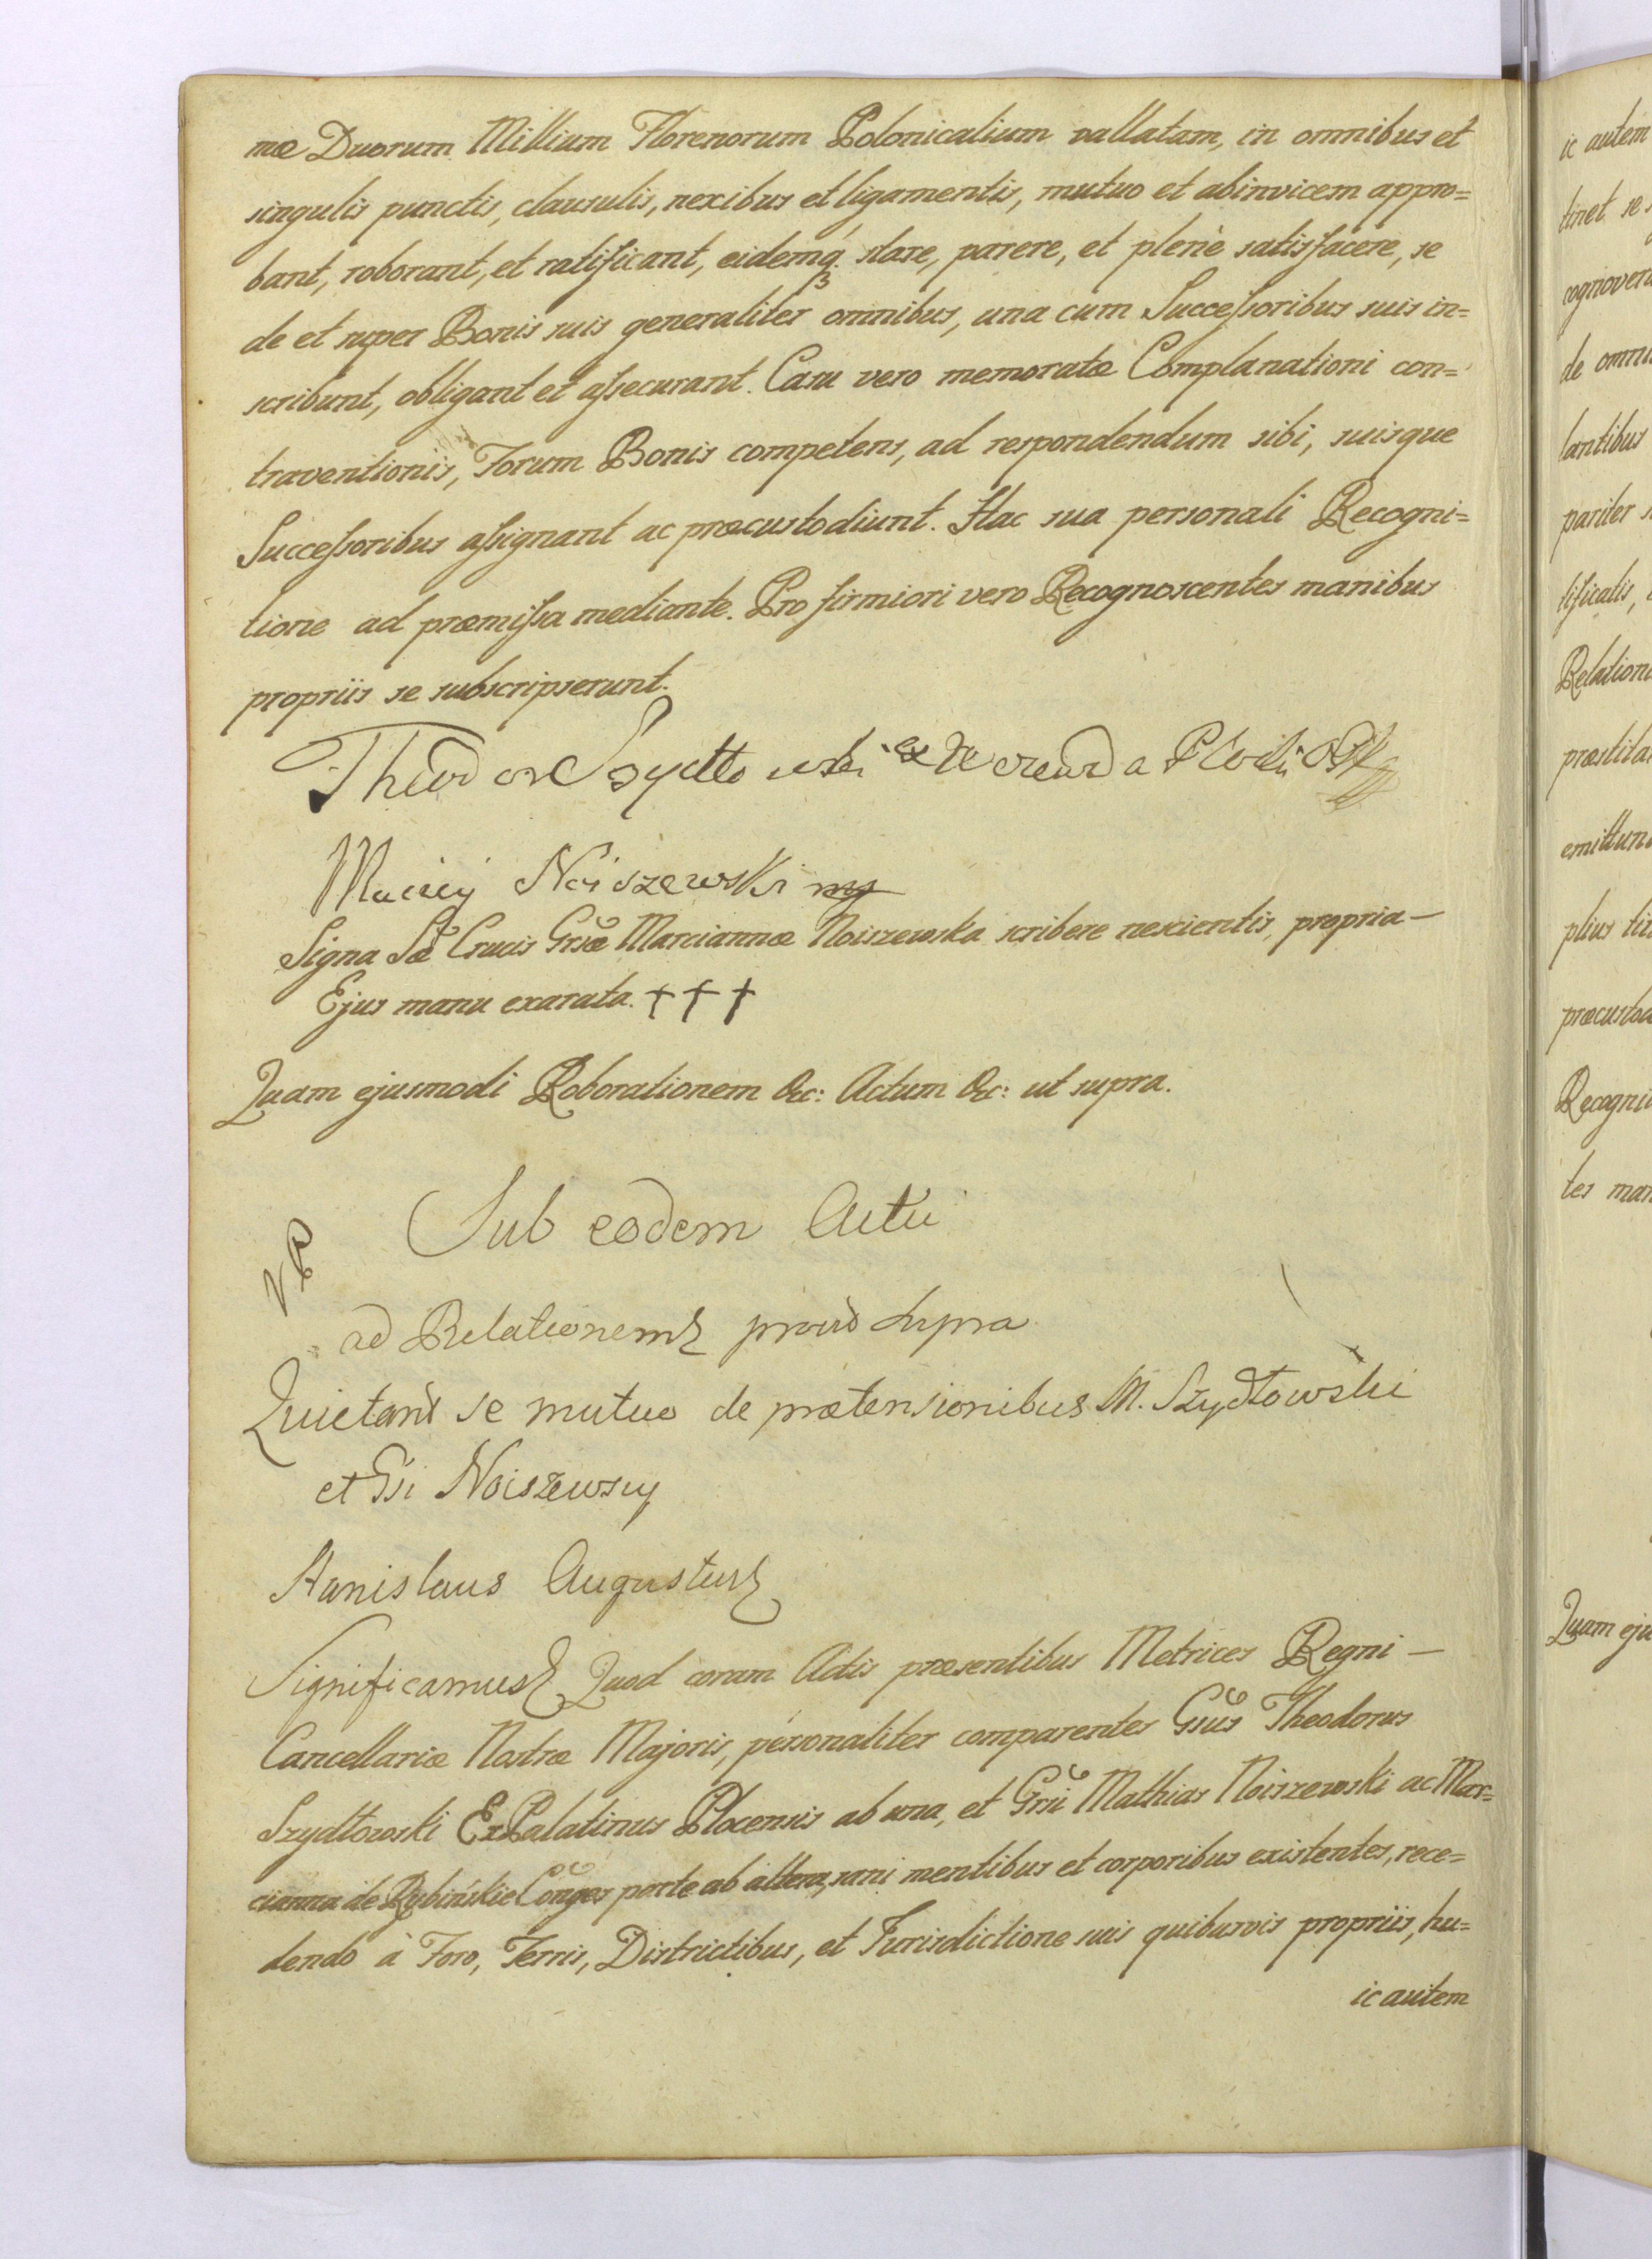 mæ Duorum Millium Florenorum Polonicalium vallatam, in omnibus et
singulis punctis, clausulis, nexibus et ligamentis, mutuo et abinvicem appro=
bant, roborant, et ratificant, eidemq. stare, parere, et plenè satisfacere, se
de et super Bonis suis generaliter omnibus, una cum Succeſsoribus suis in=
scribunt, obligant et aſsecurant. Casu vero memoratæ Complanationi con=
traventionis, Forum Bonis competens, ad respondendum sibi, suisque
Succeſsoribus aſsignant ac præcustodiunt. Hac sua personali Recogni=
tione ad præmiſsa mediante. Pro firmiori vero Recognoscentes manibus
propriis se subscripserunt.
Theodor Szydlowski ex
Maciey Noiszewski mp
Signa Sæ Crucis Gsæ Marciannæ Noiszewska scribere nescientis, propria —
Ejus manu exarata. † † †
Quam ejusmodi Roborationem &c: Actum &c: ut supra.
Sub eodem Actu
ad Relationem prout supra
Quietant se mutuo de prætensionibus M. Szydłowski
et Gsi Noiszewscy
Stanislaus Augustus
Significamus Quod coram Actis præsentibus Metrices Regni —
Cancellariæ Nostræ Majoris, personaliter comparentes Gsus Theodorus
Szydłowski ExPalatinus Plocensis ab una, et Gsi Mathias Noiszewski ac Mar=
cianna de Rybińskie Conges parte ab altera, sani mentibus et corporibus existentes, rece=
dendo à Foro, Terris, Districtibus, et Jurisdictione suis quibusvis propriis, hu=
ic autem
ic autem
tinet se
cognover
de omni
lantibus
pariter
tificatis,
Relation
præstita
emittun
plius
præcusto
Recogni
tes man
Quam eju